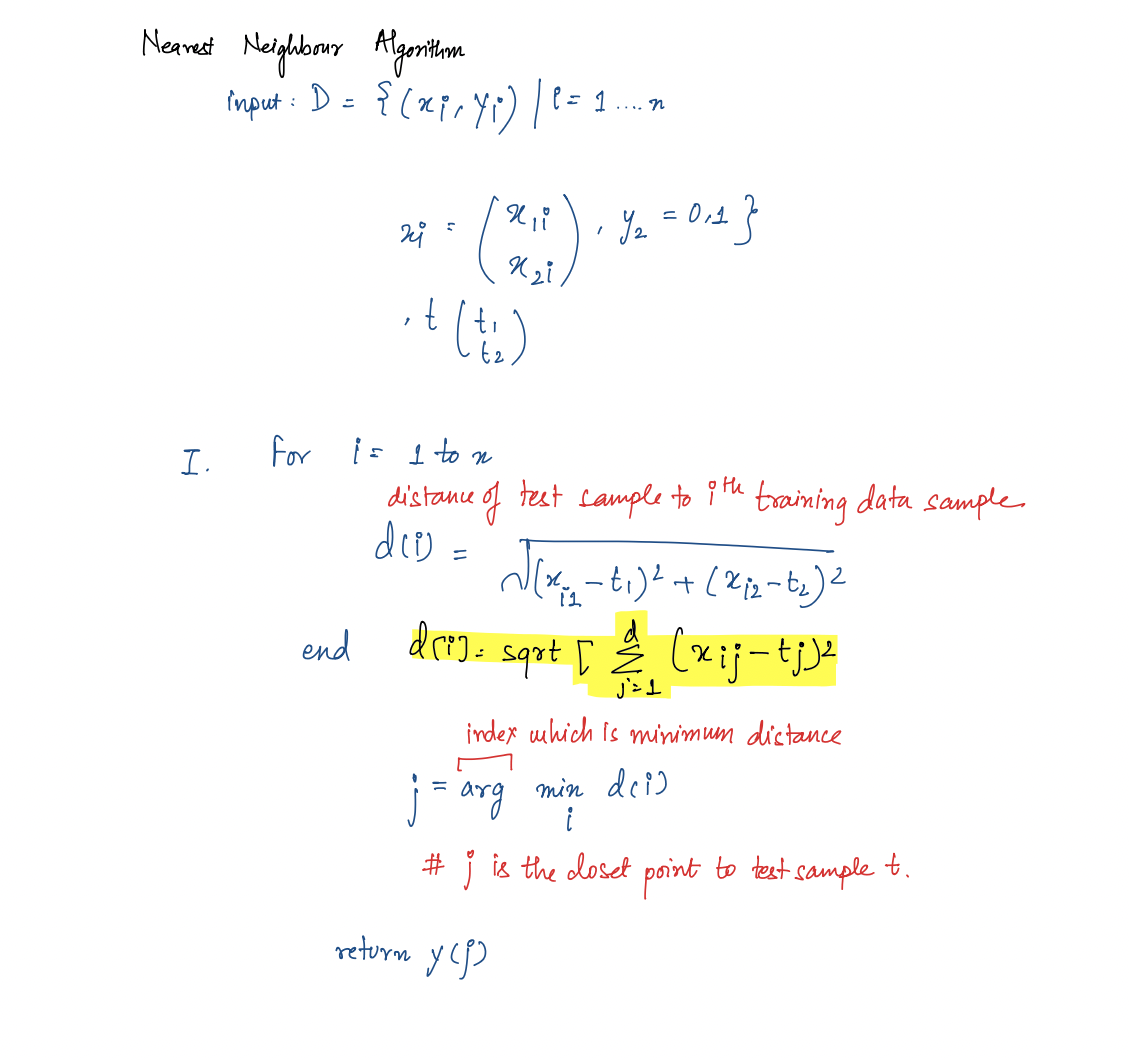 Nearest Neighbour Algorithm
input : D = {(xi, yi) | i = 1 .... n
xi = (x1i x2i), y2 = 0,1 }
, t (t1 t2)
I. For i = 1 to n
distance of test sample to ith training data sample.
d(i) = √(xi1 - t1)² + (xi2 - t2)²
end d[i] = sqrt [ d Σ j=1 (xij - tj)²
index which is minimum distance
j = arg min i d(i)
# j is the closet point to test sample t.
return y(j)